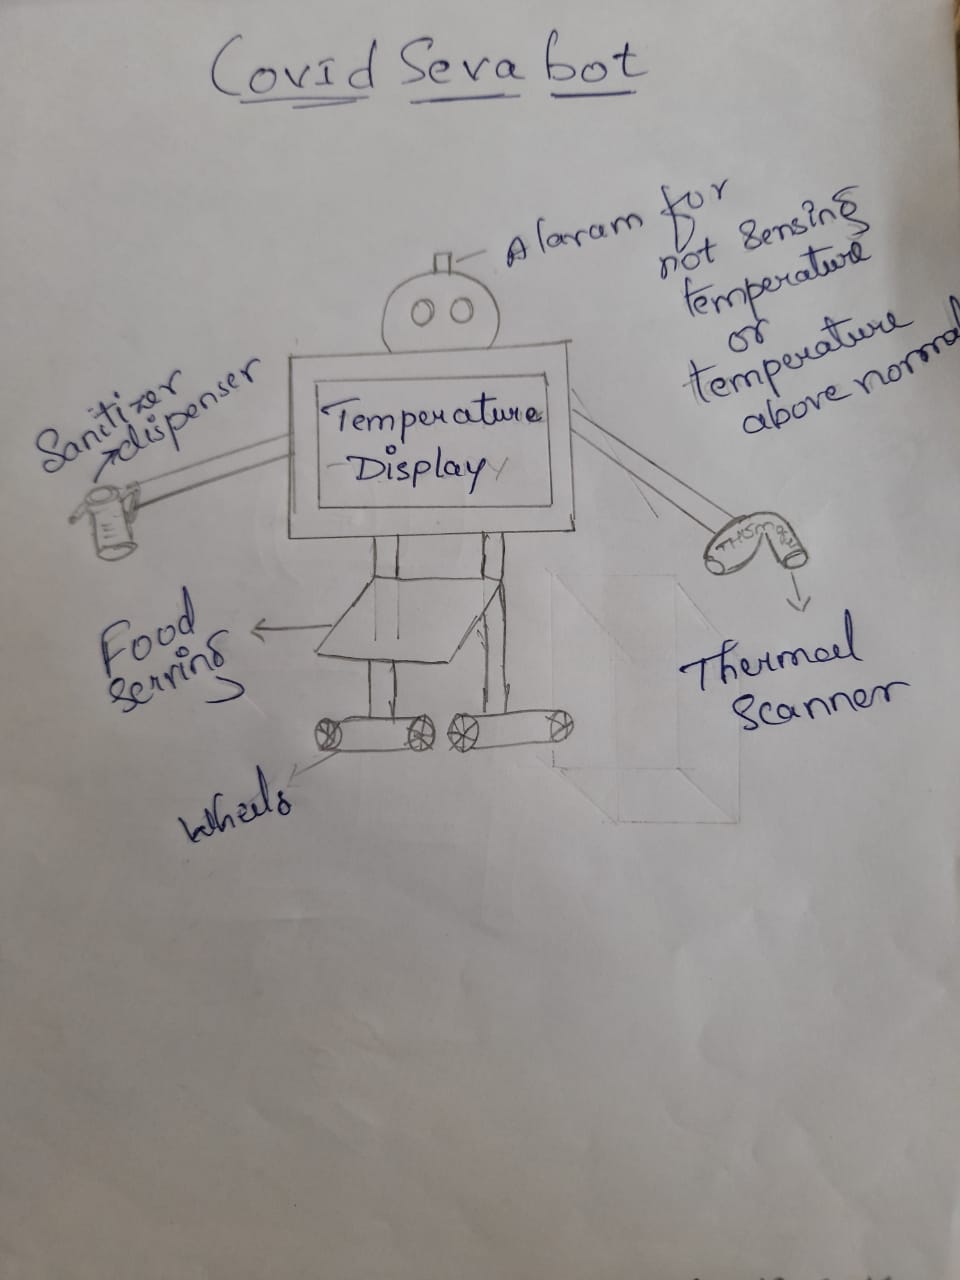 Covid Seva bot
Alaram for
not sensing
temperature
or
temperature
above normal
Sanitizer
dispenser
Temperature
Display
Food
serving
Thermal
Scanner
Wheels